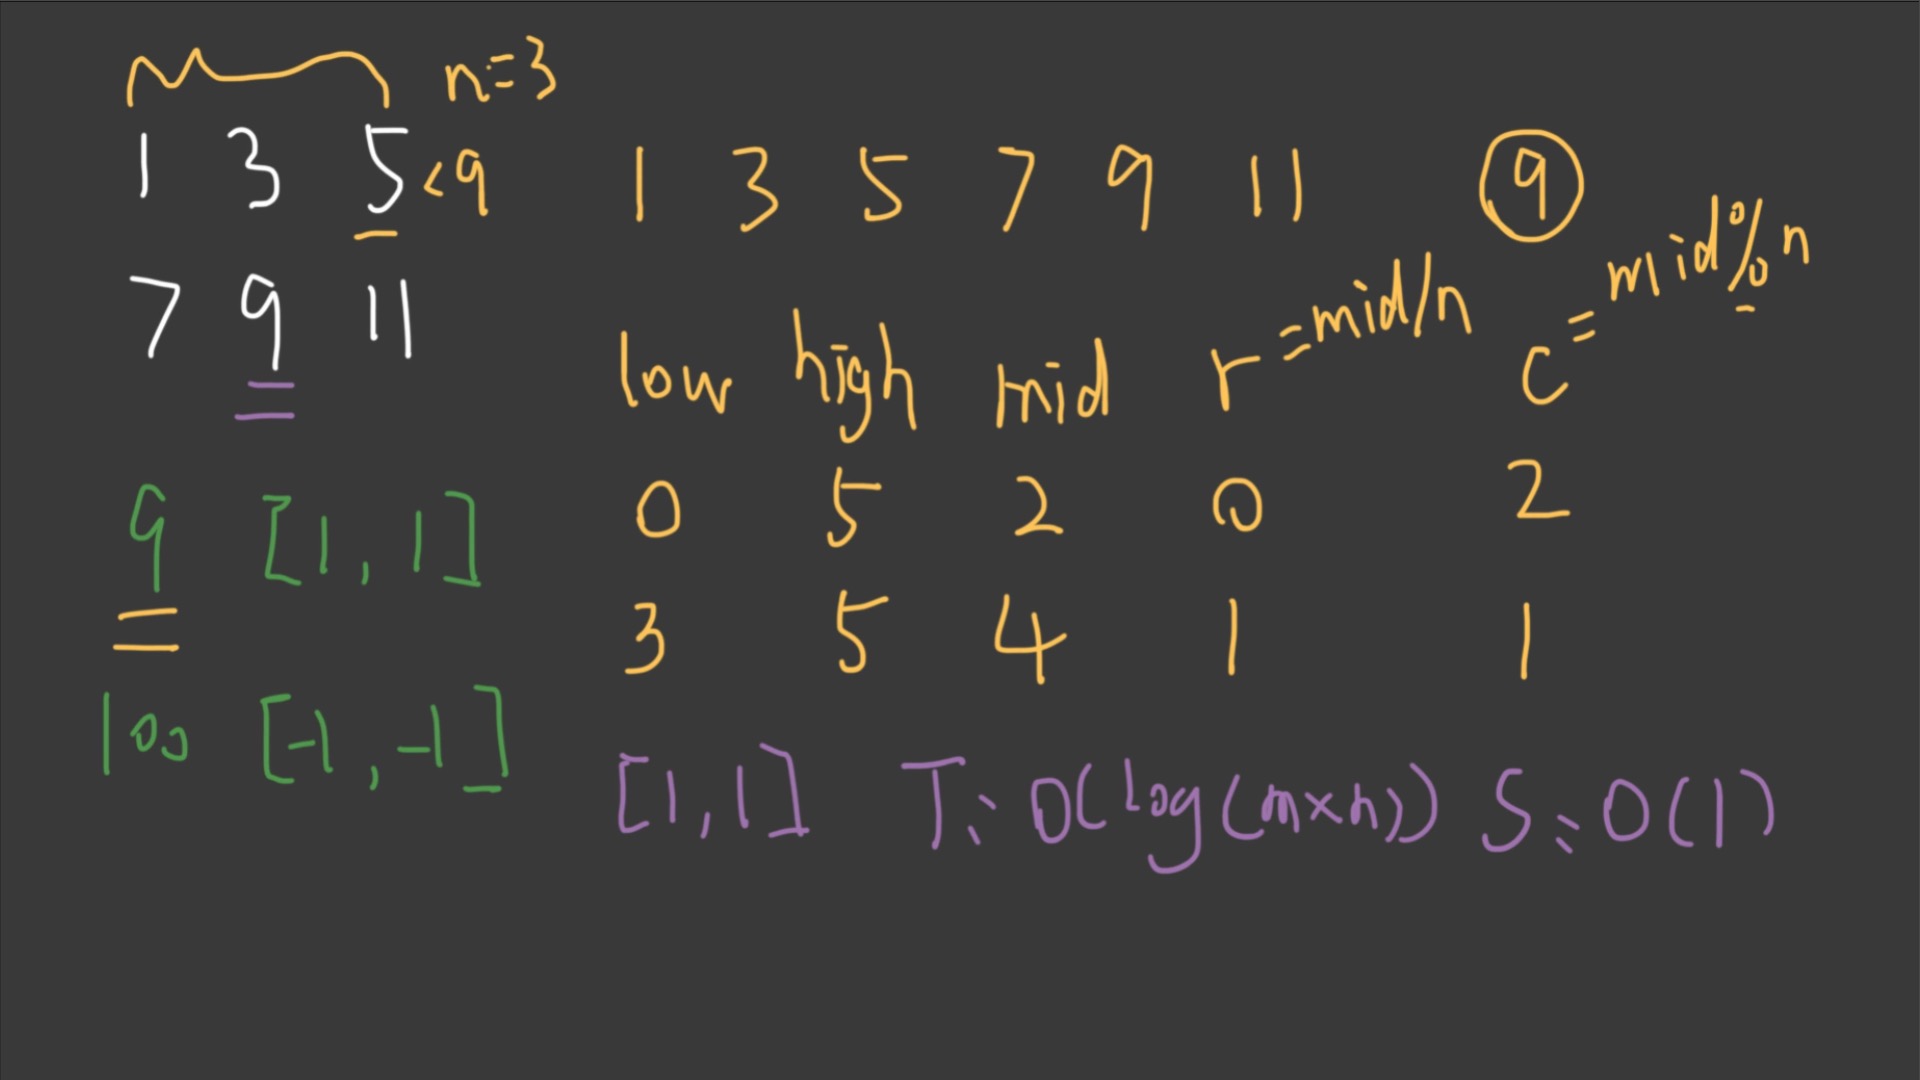 n=3
1 3 5 <9
7 9 11
9 [1, 1]
100 [-1, -1]
1 3 5 7 9 11 9
low high mid r=mid/n c=mid%n
0 5 2 0 2
3 5 4 1 1
[1, 1] T: O(log(m×n)) S: O(1)